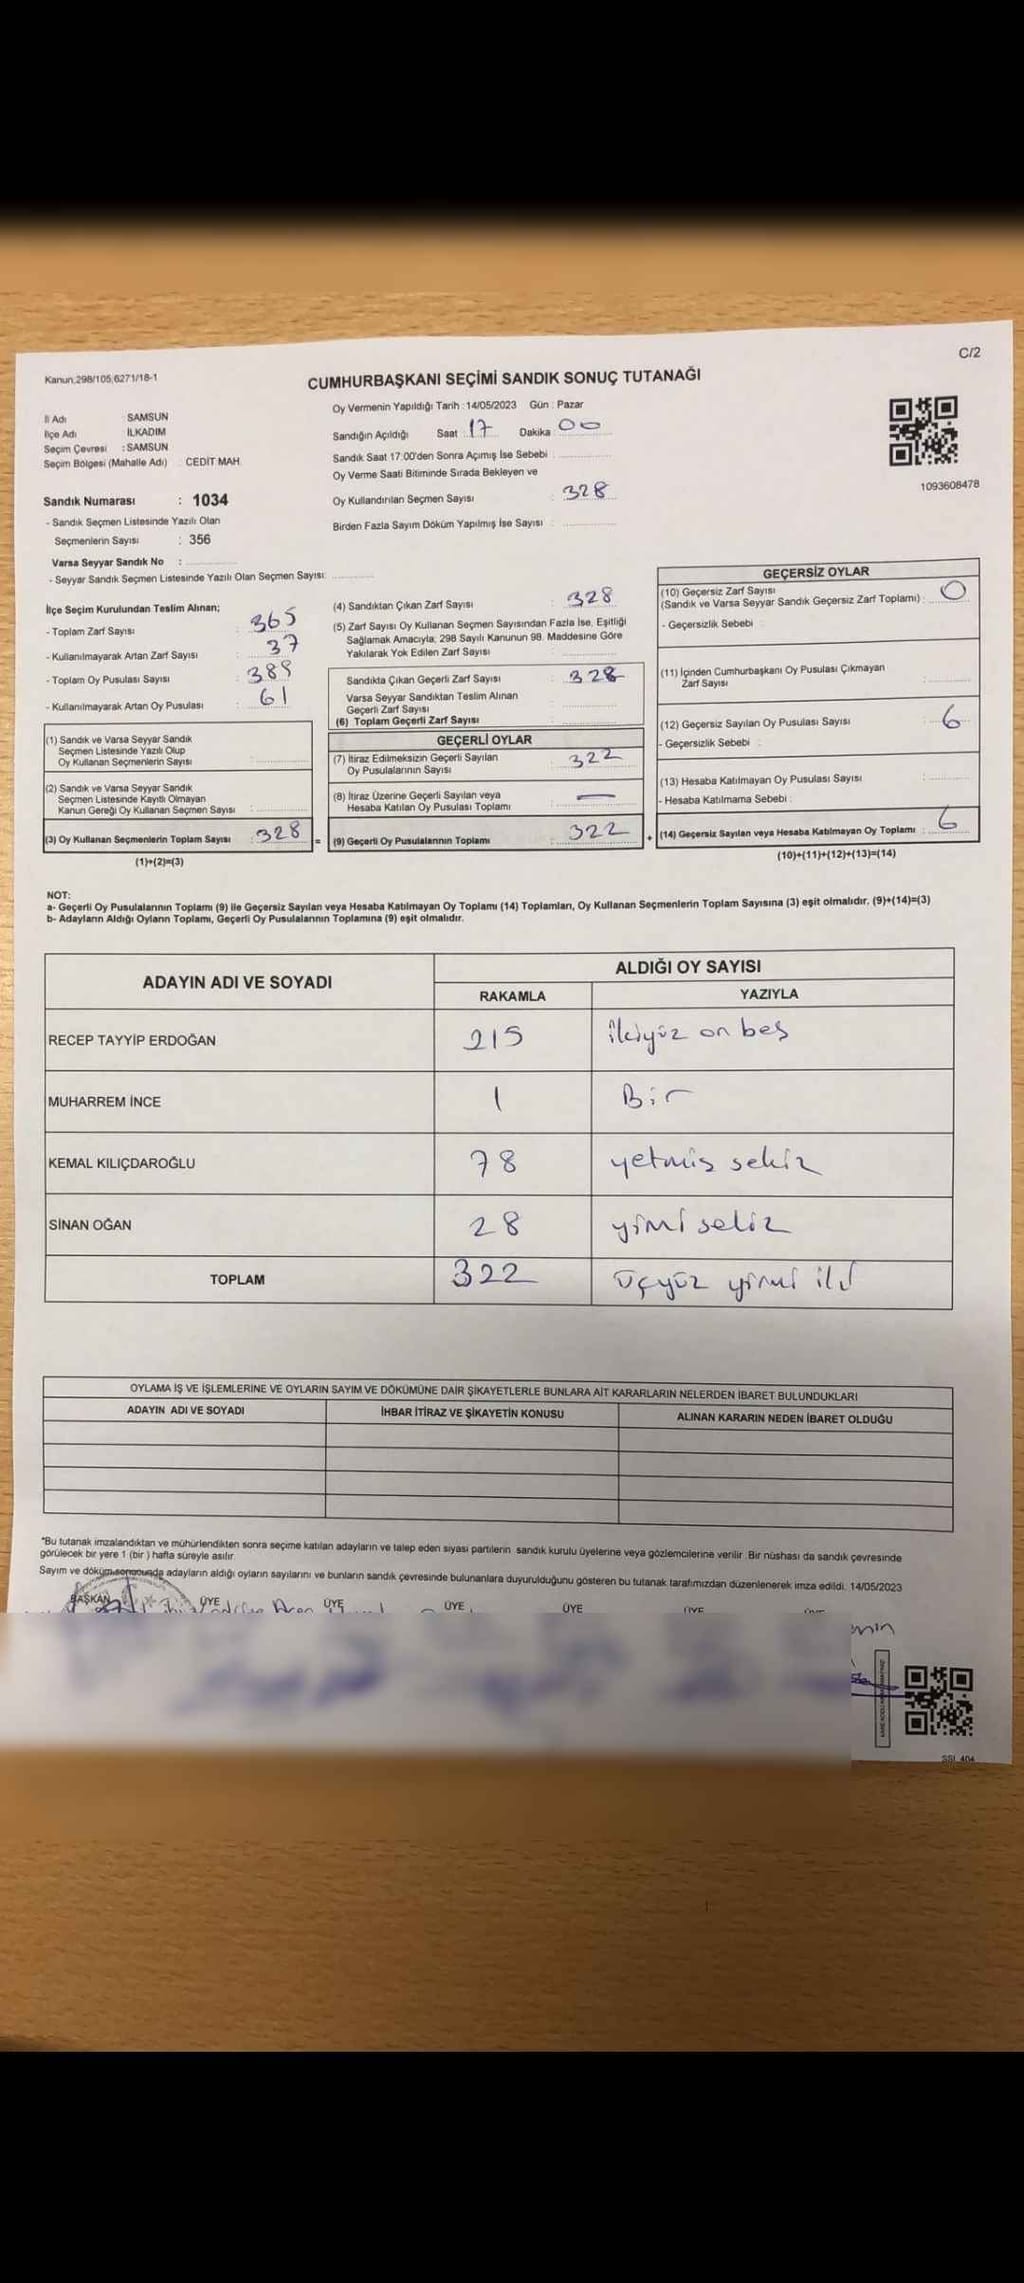 C/2
Kanun,298/105,6271/18-1
CUMHURBAŞKANI SEÇİMİ SANDIK SONUÇ TUTANAĞI
İl Adı : SAMSUN
İlçe Adı İLKADIM
Seçim Çevresi : SAMSUN
Seçim Bölgesi (Mahalle Adı) : CEDİT MAH.
Sandık Numarası : 1034
- Sandık Seçmen Listesinde Yazılı Olan
Seçmenlerin Sayısı : 356
Varsa Seyyar Sandık No :
- Seyyar Sandık Seçmen Listesinde Yazılı Olan Seçmen Sayısı:
Oy Vermenin Yapıldığı Tarih : 14/05/2023 Gün : Pazar
Sandığın Açıldığı Saat 17 Dakika 00
Sandık Saat 17:00'den Sonra Açımış İse Sebebi
Oy Verme Saati Bitiminde Sırada Bekleyen ve
Oy Kullandırılan Seçmen Sayısı : 328
Birden Fazla Sayım Döküm Yapılmış İse Sayısı :
1093608478
İlçe Seçim Kurulundan Teslim Alınan;
- Toplam Zarf Sayısı : 365
- Kullanılmayarak Artan Zarf Sayısı : 37
- Toplam Oy Pusulası Sayısı : 389
- Kullanılmayarak Artan Oy Pusulası : 61
(1) Sandık ve Varsa Seyyar Sandık
Seçmen Listesinde Yazılı Olup
Oy Kullanan Seçmenlerin Sayısı
(2) Sandık ve Varsa Seyyar Sandık
Seçmen Listesinde Kayıtlı Olmayan
Kanun Gereği Oy Kullanan Seçmen Sayısı
(3) Oy Kullanan Seçmenlerin Toplam Sayısı : 328 =
(1)+(2)=(3)
(4) Sandıktan Çıkan Zarf Sayısı : 328
(5) Zarf Sayısı Oy Kullanan Seçmen Sayısından Fazla İse, Eşitliği
Sağlamak Amacıyla; 298 Sayılı Kanunun 98. Maddesine Göre
Yakılarak Yok Edilen Zarf Sayısı
Sandıkta Çıkan Geçerli Zarf Sayısı : 328
Varsa Seyyar Sandıktan Teslim Alınan
Geçerli Zarf Sayısı
(6) Toplam Geçerli Zarf Sayısı
GEÇERLİ OYLAR
(7) İtiraz Edilmeksizin Geçerli Sayılan
Oy Pusulalarının Sayısı : 322
(8) İtiraz Üzerine Geçerli Sayılan veya
Hesaba Katılan Oy Pusulası Toplamı : —
(9) Geçerli Oy Pusulalarının Toplamı : 322 +
GEÇERSİZ OYLAR
(10) Geçersiz Zarf Sayısı
(Sandık ve Varsa Seyyar Sandık Geçersiz Zarf Toplamı) : 0
- Geçersizlik Sebebi
(11) İçinden Cumhurbaşkanı Oy Pusulası Çıkmayan
Zarf Sayısı
(12) Geçersiz Sayılan Oy Pusulası Sayısı 6
- Geçersizlik Sebebi :
(13) Hesaba Katılmayan Oy Pusulası Sayısı
- Hesaba Katılmama Sebebi :
(14) Geçersiz Sayılan veya Hesaba Katılmayan Oy Toplamı : 6
(10)+(11)+(12)+(13)=(14)
NOT:
a- Geçerli Oy Pusulalarının Toplamı (9) ile Geçersiz Sayılan veya Hesaba Katılmayan Oy Toplamı (14) Toplamları, Oy Kullanan Seçmenlerin Toplam Sayısına (3) eşit olmalıdır. (9)+(14)=(3)
b- Adayların Aldığı Oyların Toplamı, Geçerli Oy Pusulalarının Toplamına (9) eşit olmalıdır.
ADAYIN ADI VE SOYADI ALDIĞI OY SAYISI
RAKAMLA YAZIYLA
RECEP TAYYİP ERDOĞAN 215 ikiyüz on beş
MUHARREM İNCE 1 Bir
KEMAL KILIÇDAROĞLU 78 yetmiş sekiz
SİNAN OĞAN 28 yimi seliz
TOPLAM 322 üçyüz yirmi iki
OYLAMA İŞ VE İŞLEMLERİNE VE OYLARIN SAYIM VE DÖKÜMÜNE DAİR ŞİKAYETLERLE BUNLARA AİT KARARLARIN NELERDEN İBARET BULUNDUKLARI
ADAYIN ADI VE SOYADI İHBAR İTİRAZ VE ŞİKAYETİN KONUSU ALINAN KARARIN NEDEN İBARET OLDUĞU
*Bu tutanak imzalandıktan ve mühürlendikten sonra seçime katılan adayların ve talep eden siyasi partilerin sandık kurulu üyelerine veya gözlemcilerine verilir. Bir nüshası da sandık çevresinde
görülecek bir yere 1 (bir) hafta süreyle asılır.
Sayım ve döküm sonucunda adayların aldığı oyların sayılarını ve bunların sandık çevresinde bulunanlara duyurulduğunu gösteren bu tutanak tarafımızdan düzenlenerek imza edildi. 14/05/2023
BAŞKAN ÜYE ÜYE ÜYE ÜYE ÜYE